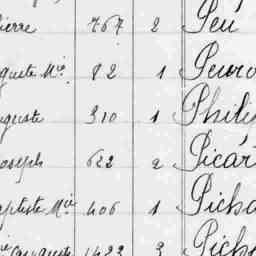 ierre 767 2 Peu
uguste Mie 82 1 Peuro
uguste 310 1 Philip
oseph 622 2 Picar
aptiste Mie 406 1 Picho
1422 3 Picho